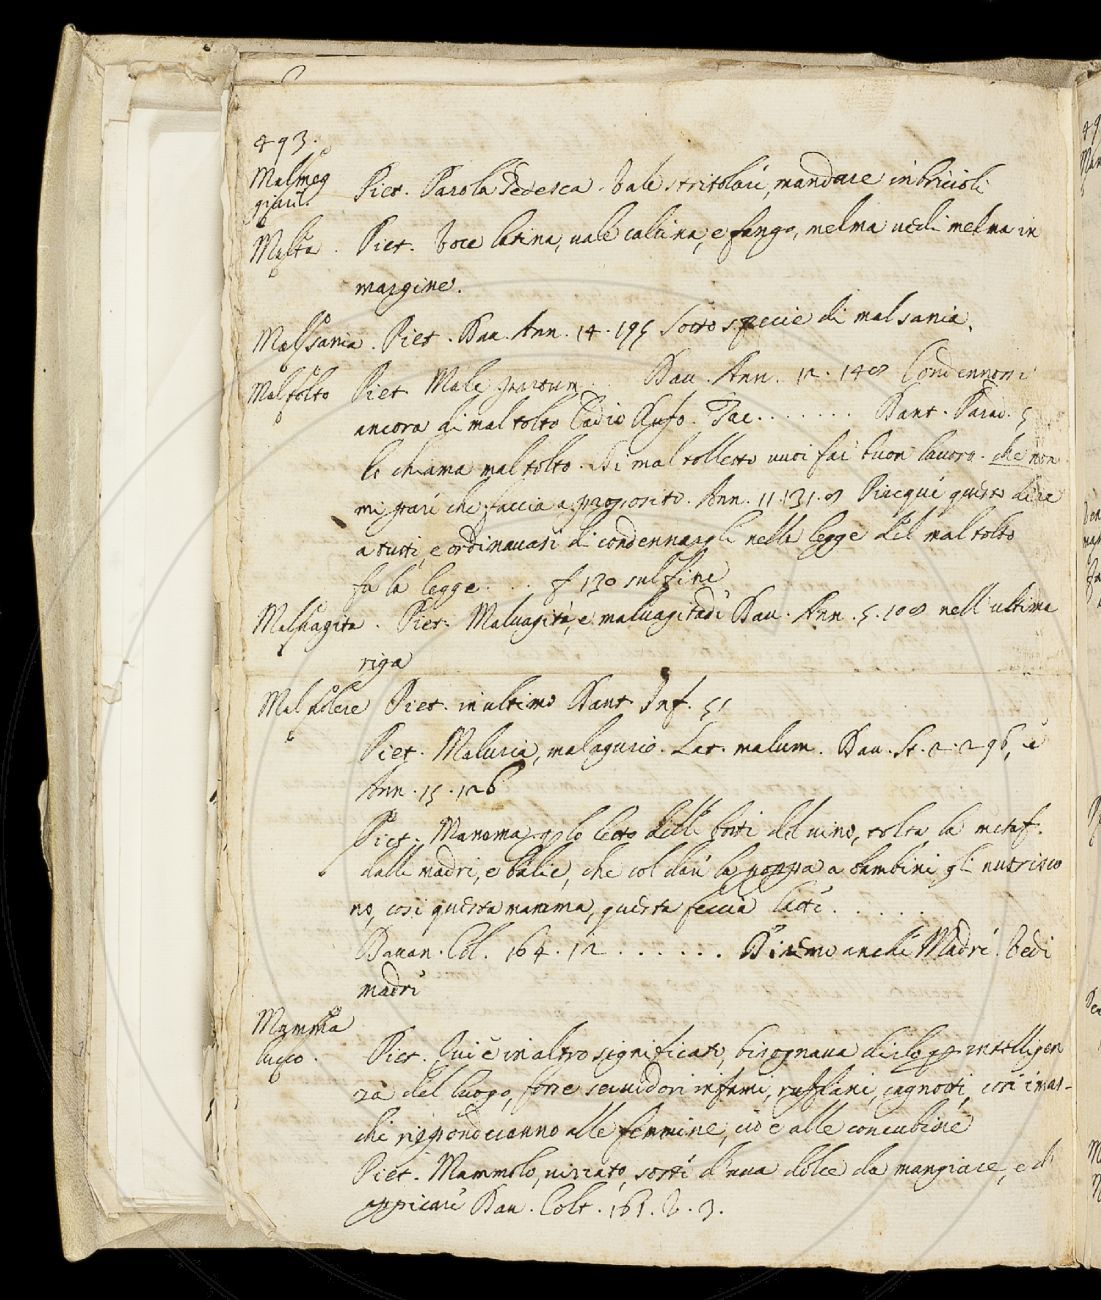 493.
Malmeg
giare Piet. Parola Tedesca. Vale stritolare, mandare in bricioli
Malta. Piet. Voce latina, vale calcina, e fango, melma vedi melma in
margine.
Malsania. Piet. Dav. Ann. 14. 195 Sotto specie di malsania.
Maltolto Piet. Male partum.. Dav. Ann. 12. 148 Condennossi
ancora di mal tolto Cadio Rufo. Tac....... Dant. Parad. 5
lo chiama mal tolto. Di mal tolletto vuoi far buon lavoro. che non
mi pare che faccia a proposito. Ann. 11. 131. 8 Piacque questo dire
a tutti, e ordinavasi di condennargli nella legge del mal tolto
fu la legge... f 130 sul fine
Malvagità. Piet. Malvagità, e malvagitadi Dav. Ann. 5. 108 nell'ultima
riga
Malvolere Piet. in ultimo Dant. Inf. 31
Piet. Maluria, malagurio. Lat. malum. Dav. St. 2. 296, e
Ann. 15. 126
Piet. Mamma p lo letto delle botti del vino, tolta la metaf.
dalle madri, e balie, che col dare la poppa a bambini gli nutrisco
no, così questa mamma, questa feccia latte......
Davan. Col. 164. 12...... Diremo anche Madre. Vedi
madre
Mamma
lucco. Piet. Qui è in altro significato, bisognava dirlo p intelligen
za del luogo, forse servidori infami, ruffiani, cagnotti, così i mas-
chi risponderanno alle femmine, cioè alle concubine
Piet. Mammolo, viziato, sorte d'uva dolce da mangiare, e di
appicare Dav. Colt. 161. V. 3.